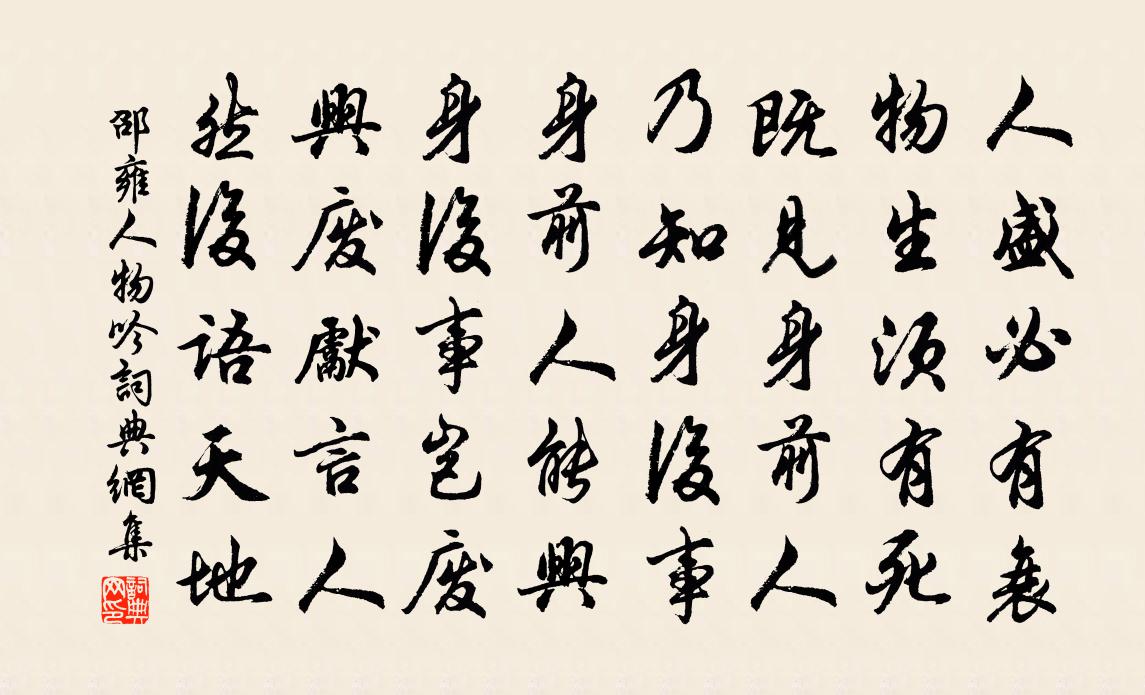 人盛必有衰
物生須有死
既見身前人
乃知身後事
身前人能興
身後事豈廢
興廢獻言人
然後語天地
邵雍人物吟詞典網集
詞典网印